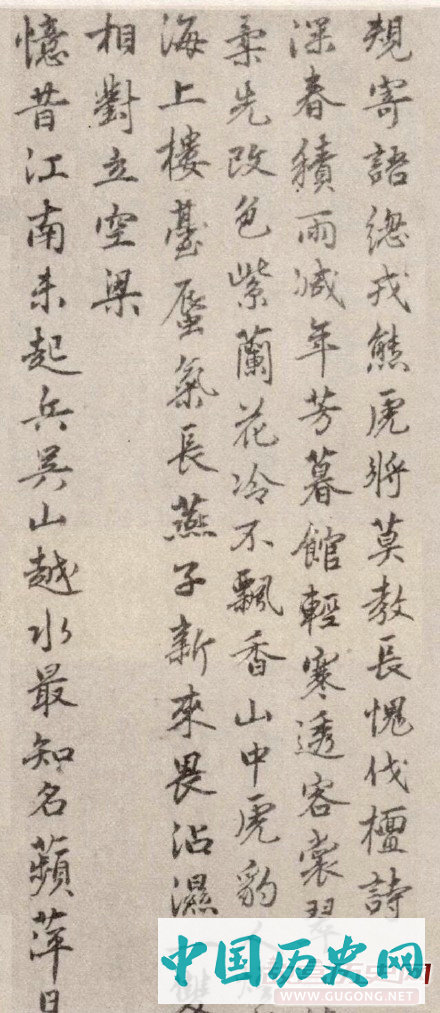 觀寄語總戎熊虎將莫教長愧伐檀詩
深春積雨減年芳暮館輕寒透客裳翠
柔先改色紫蘭花冷不飄香山中虎豹
海上樓臺蜃氣長燕子新來畏沾濕雙
相對立空梁
憶昔江南未起兵吳山越水最知名蘋萍日
中国历史网
WWW.GUGONG.NET